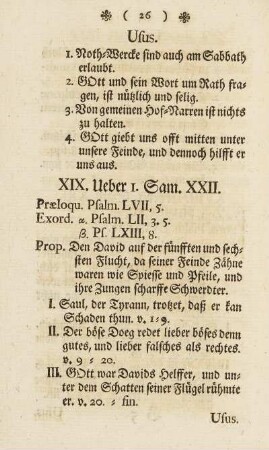 * ( 26 ) *
Usus.
1. Noth-Wercke sind auch am Sabbath
erlaubt.
2. GOtt und sein Wort um Rath fra-
gen, ist nützlich und selig.
3. Von gemeinen Hof-Narren ist nichts
zu halten.
4. GOtt giebt uns offt mitten unter
unsere Feinde, und dennoch hilfft er
uns aus.
XIX. Ueber 1. Sam. XXII.
Præloqu. Psalm. LVII, 5.
Exord. α. Psalm. LII, 3. 5.
β. Ps. LXIII, 8.
Prop. Den David auf der fünfften und sech-
sten Flucht, da seiner Feinde Zähne
waren wie Spiesse und Pfeile, und
ihre Zungen scharffe Schwerdter.
I. Saul, der Tyrann, trotzet, daß er kan
Schaden thun. v. 1-9.
II. Der böse Doeg redet lieber böses denn
gutes, und lieber falsches als rechtes.
v. 9 - 20.
III. GOtt war Davids Helffer, und un-
ter dem Schatten seiner Flügel rühmte
er. v. 20. - fin.
Usus.